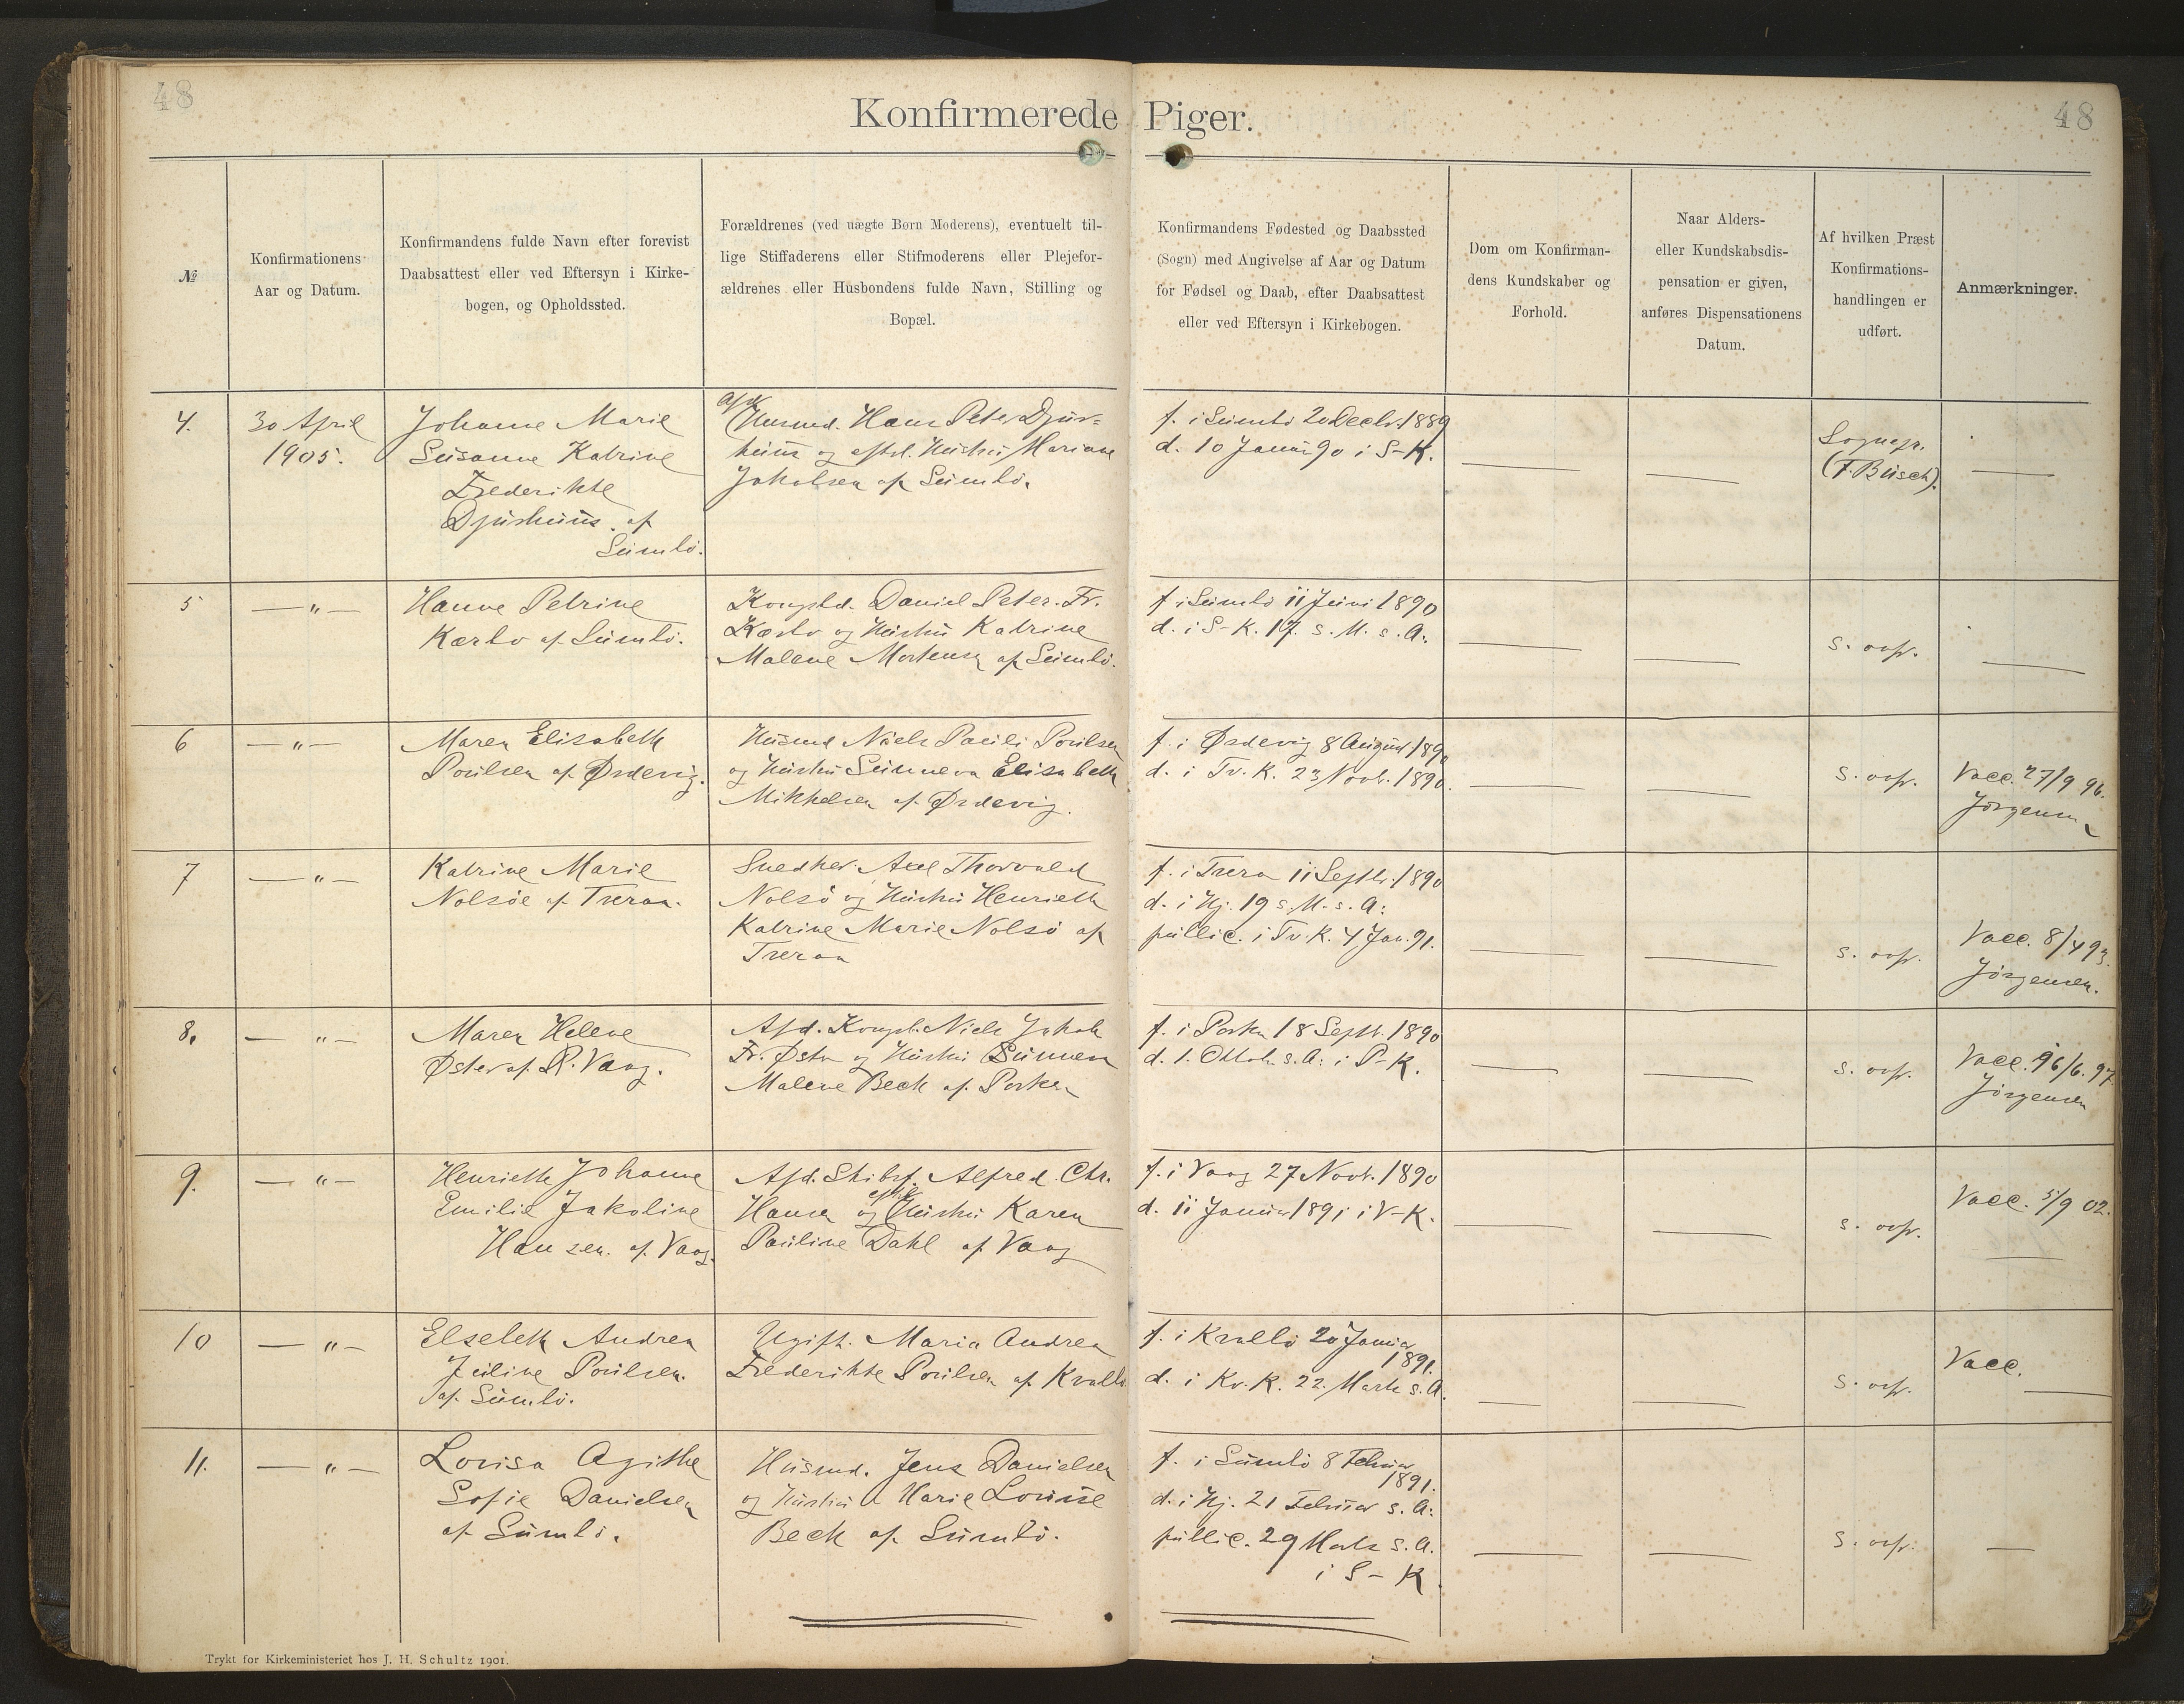 48
48
Konfirmerede Piger.
№
Konfirmationens
Aar og Datum.
Konfirmandens fulde Navn efter forevist
Daabsattest eller ved Eftersyn i Kirke-
bogen, og Opholdssted.
Forældrenes (ved uægte Børn Moderens), eventuelt til-
lige Stiffaderens eller Stifmoderens eller Plejefor-
ældrenes eller Husbondens fulde Navn, Stilling og
Bopæl.
Konfirmandens Fødested og Daabssted
(Sogn) med Angivelse af Aar og Datum
for Fødsel og Daab, efter Daabsattest
eller ved Eftersyn i Kirkebogen.
Dom om Konfirman-
dens Kundskaber og
Forhold.
Naar Alders-
eller Kundskabsdis-
pensation er given,
anføres Dispensationens
Datum.
Af hvilken Præst
Konfirmations-
handlingen er
udført.
Anmærkninger.
4.
30 April
1905.
Johanne Marie
Susanne Katrine
Frederikke
Djurhuus af
Sumbö.
Husmd. Hans Peter Djur=
huus og Hustru Mariane
Jakobsen af Sumbö.
f. i Sumbö 20 Decbr. 1889
d. 10 Januar 90 i S-K.
Sognepr.
(F. Busch).
5
— " —
Hanne Petrine
Kærbo af Sumbö.
Kongsbd. Daniel Peter Fr.
Kærbo og Hustru Katrine
Malene Mortensen af Sumbö.
f. i Sumbö 11 Juni 1890
d. i S-K. 17. s. M. s. A.
s. ovfr.
6
— " —
Maren Elisabeth
Poulsen af Ørdevig.
Husmd Niels Pauli Poulsen
og Hustru Sunneva Elisabeth
Mikkelsen af Ørdevig.
f. i Ørdevig 8 August 1890
d. i Tv. K. 23 Novb. 1890.
s. ovfr.
Vacc. 27/9 96.
Jörgensen
7
— " —
Katrine Marie
Nolsöe af Tveraa.
Snedker Axel Thorvald
Nolsö og Hustru Henriette
Katrine Marie Nolsö af
Tveraa
f. i Tveraa 11 Septb. 1890
d. i Hj. 19 s. M. s. A:
public. i Tv. K. 4 Jan. 91.
s. ovfr.
Vacc. 8/4 93.
Jörgensen.
8.
— " —
Maren Helene
Øster af Vaag.
Afd. Kongsb. Niels Jakob
Fr. Øster og Hustru Sunneva
Malene Beck af Porkeri
f. i Porkeri 18 Septb. 1890
d. 1. Oktob. s. A: i P-K.
s. ovfr.
Vacc. 16/6. 97
Jörgensen
9.
— " —
Henriette Johanne
Emilie Jakoline
Hansen af Vaag.
Afd. Skibsf. Alfred Chr.
Hansen og Hustru Karen
Pauline Dahl af Vaag
f. i Vaag 27 Novb. 1890
d. 11 Januar 1891 i V-K.
s. ovfr.
Vacc. 5/9 02.
10
— " —
Elsebeth Andrea
Juline Poulsen.
af Sumbö.
Ugift. Maria Andrea
Frederikke Poulsen af Kvalbö
f. i Kvalbö 20 Januar
1891.
d. i Kv. K. 22. Marts s. A.
s. ovfr.
Vacc.
11.
— " —
Lovisa Agithe
Sofie Danielsen
af Sumbö.
Husmd. Jens Danielsen
og Hustru Marie Louise
Beck af Sumbö.
f. i Sumbö 8 Februar
1891.
d. i Hj. 21 Februar s. A:
public. 29 Marts s. A.
i S-K
s. ovfr.
Trykt for Kirkeministeriet hos J. H. Schultz 1901.